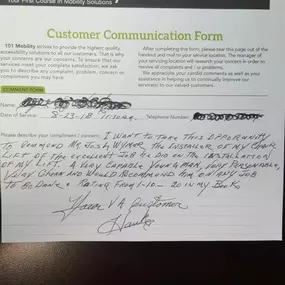 Your First Course in Mobility Solutions
Customer Communication Form
101 Mobility strives to provide the highest quality
accessibility solutions to all our customers. That is why
your concerns are our concerns. To ensure that our
services meet your complete satisfaction, we ask
you to describe any complaint, problem, concern or
compliment you may have.
After completing this form, please tear this page out of the
handout and mail to your service location. The manager of
your servicing location will research your concern in order to
resolve all complaints and / or problems.
We appreciate your candid comments as well as your
assistance in helping us to continually improve our
service(s) to our valued customers.
COMMENT FORM
Name:
Date of Service: 8-23-18
Telephone Number:
Please describe your compliment / concern: I WANT TO TAKE THIS OPPORTUNITY
TO COMMEND MR. JOSH WYMER THE INSTALLER OF MY CHAIR
LIFT OF THE EXCELLENT JOB HE DID ON THE INSTALLATION
OF MY LIFT. A VERY CAPABLE YOUNG MAN, VERY PERSONABLE,
VERY CLEAN AND WOULD RECOMMEND HIM ON ANY JOB
TO BE DONE. RATING FROM 1-10 - 20 IN MY BOOK
VA Customer
Thanks